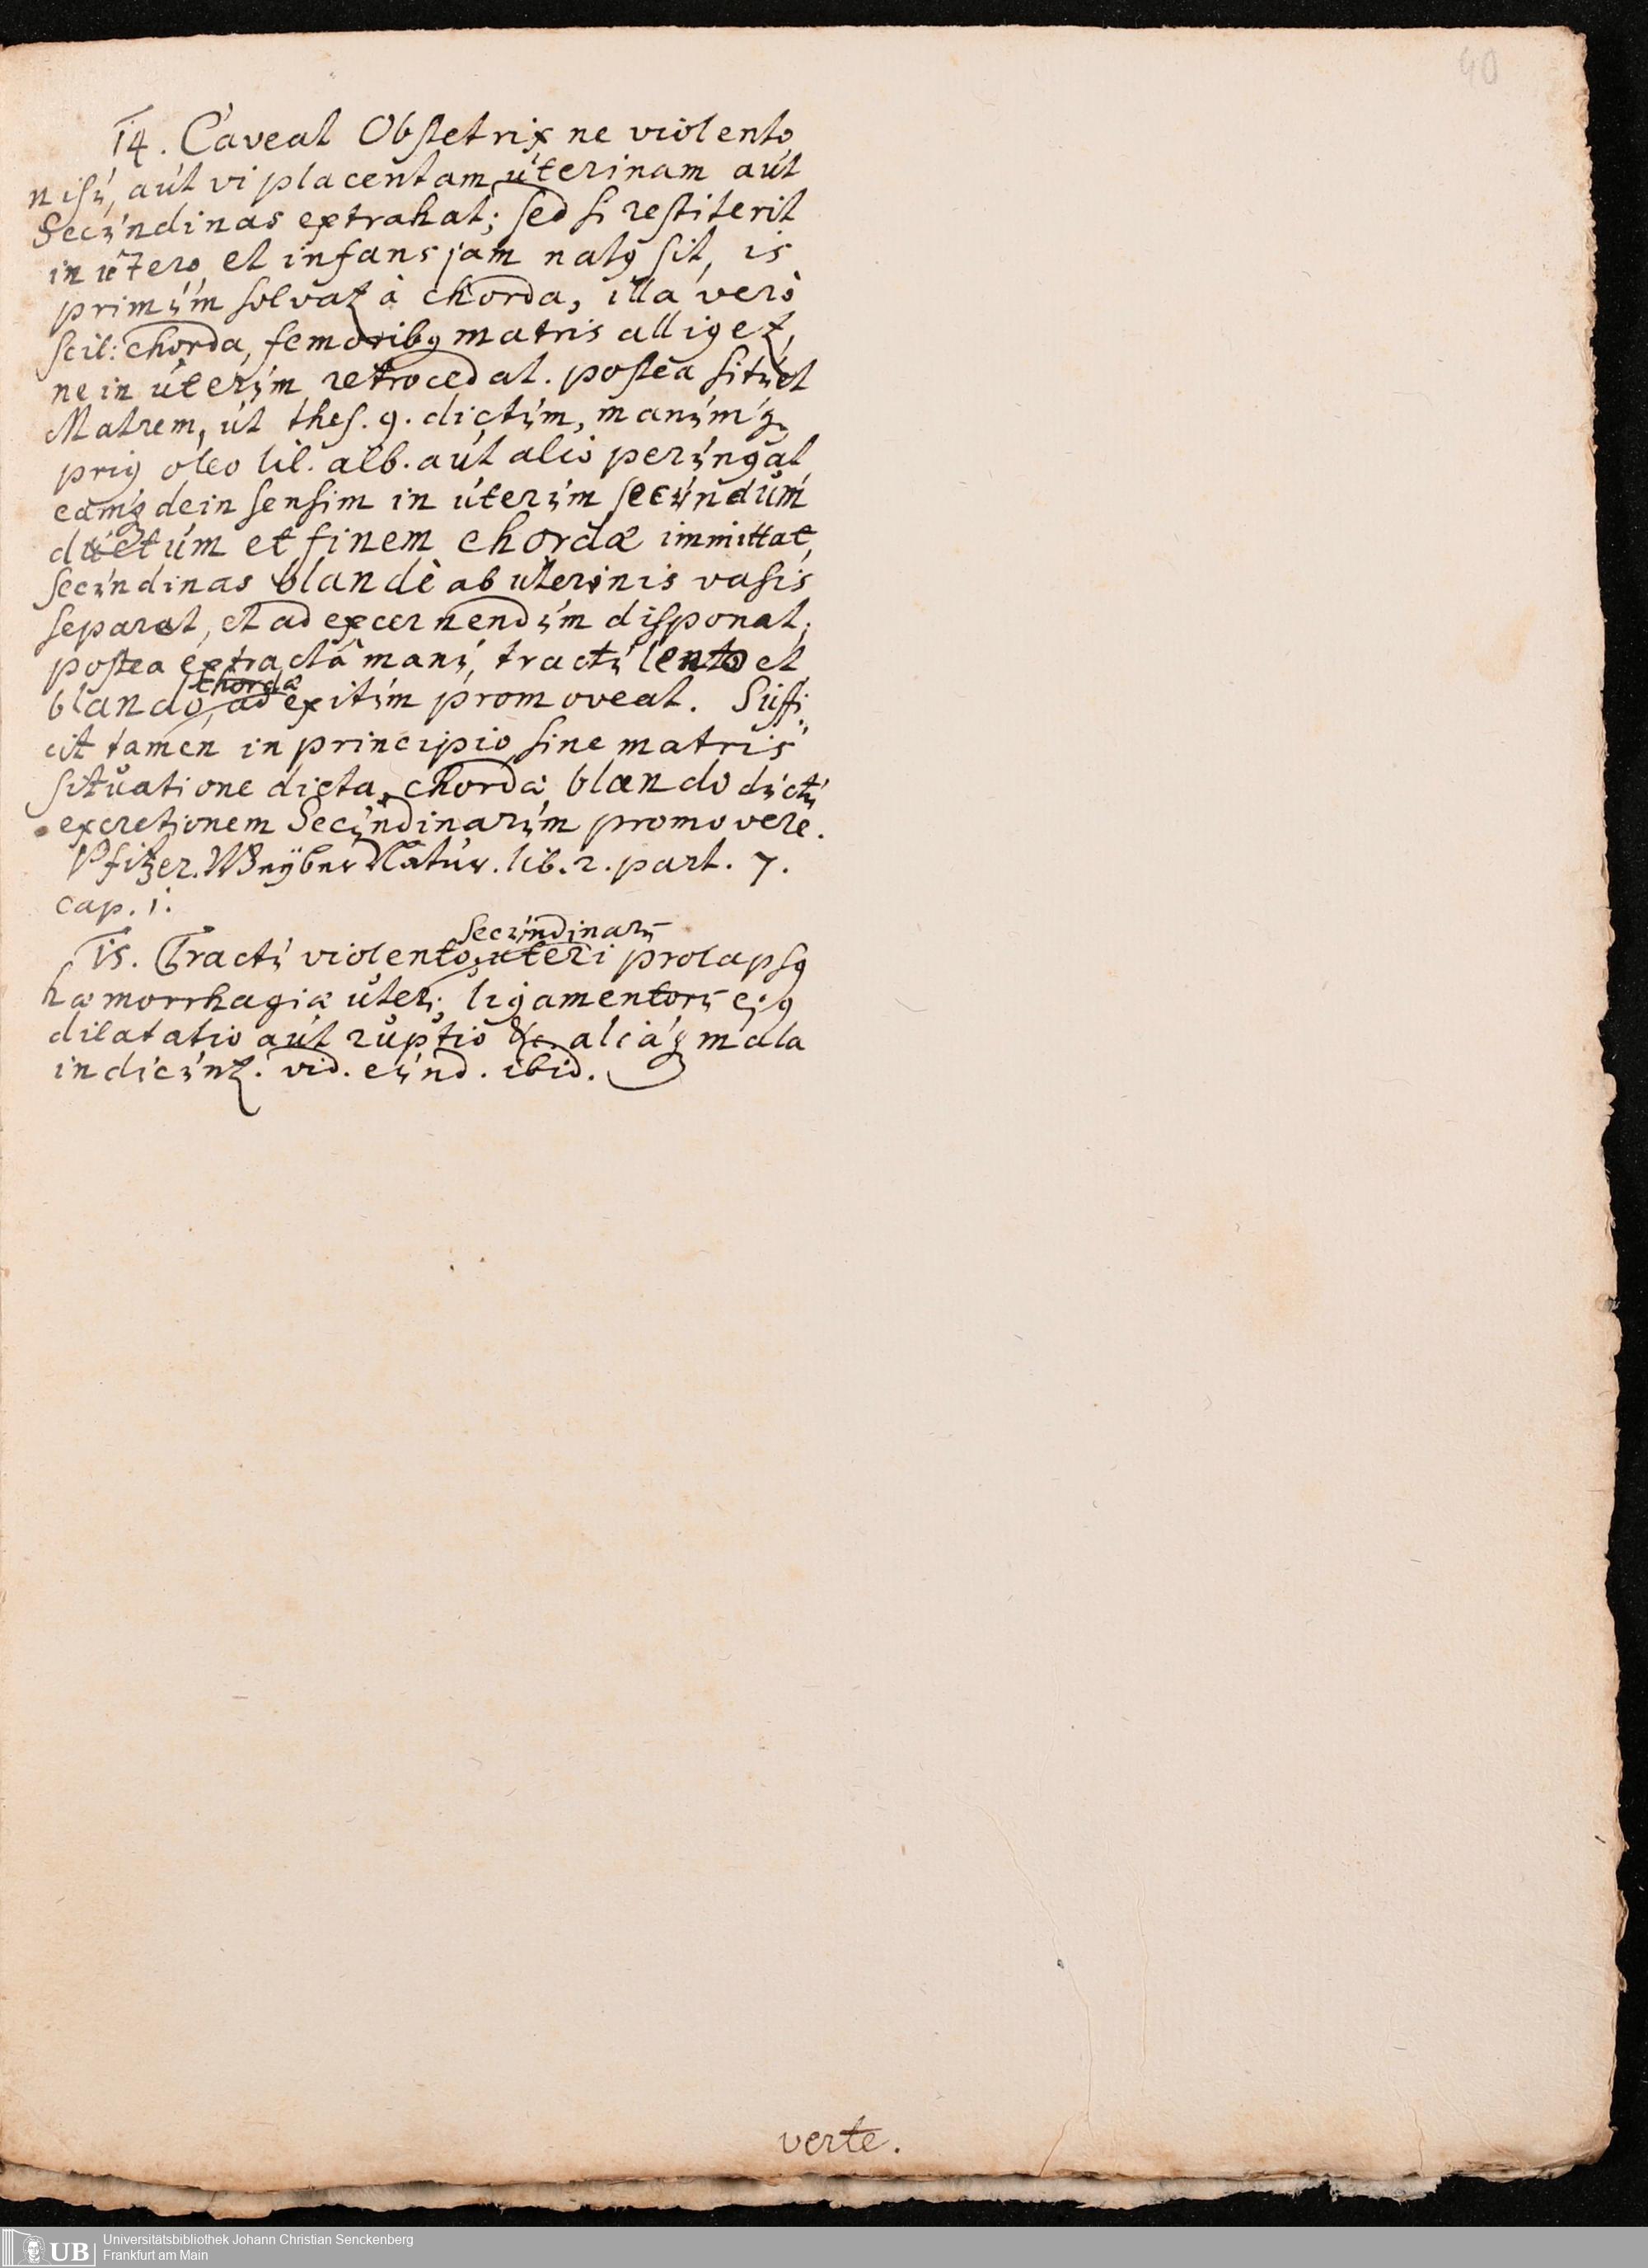 40
14. Caveat Obstetrix ne violento
nisu, aut vi placentam uterinam aut
Secundinas extrahat; sed si restiterit
in utero et infans jam natꝰ sit, is
primum solvatꝛ à chorda, illa verò
scil: chorda, femoribꝰ matris alligetꝛ,
ne in uterum retrocedat. postea situet
Matrem, ut thes. 9. dictum, manumqꝫ
priꝰ oleo lil. alb. aut alio perungat
eamqꝫ dein sensim in uterum secundum
ductum et finem chordæ immittat,
secundinas blandè ab uterinis vasis
separet, et ad excernendum disponat;
postea extractâ manu, tractu lento et
chordæ
blando, ad exitum promoveat. Suffi-
cit tamen in principio sine matris
situatione dicta, chorda blando ductu
excretionem Secundinarum promovere.
Pfitzer. Weyber Natur. lib. 2. part. 7.
cap. 1.
secundinarū
15. Tractu violento, uteri prolapsꝰ
hæmorrhagiæ uteri, ligamentorū ejꝰ
dilatatio aut ruptio &c. aliaqꝫ mala
inducuntꝛ. vid. eund. ibid.
verte.
UB
Universitätsbibliothek Johann Christian Senckenberg
Frankfurt am Main